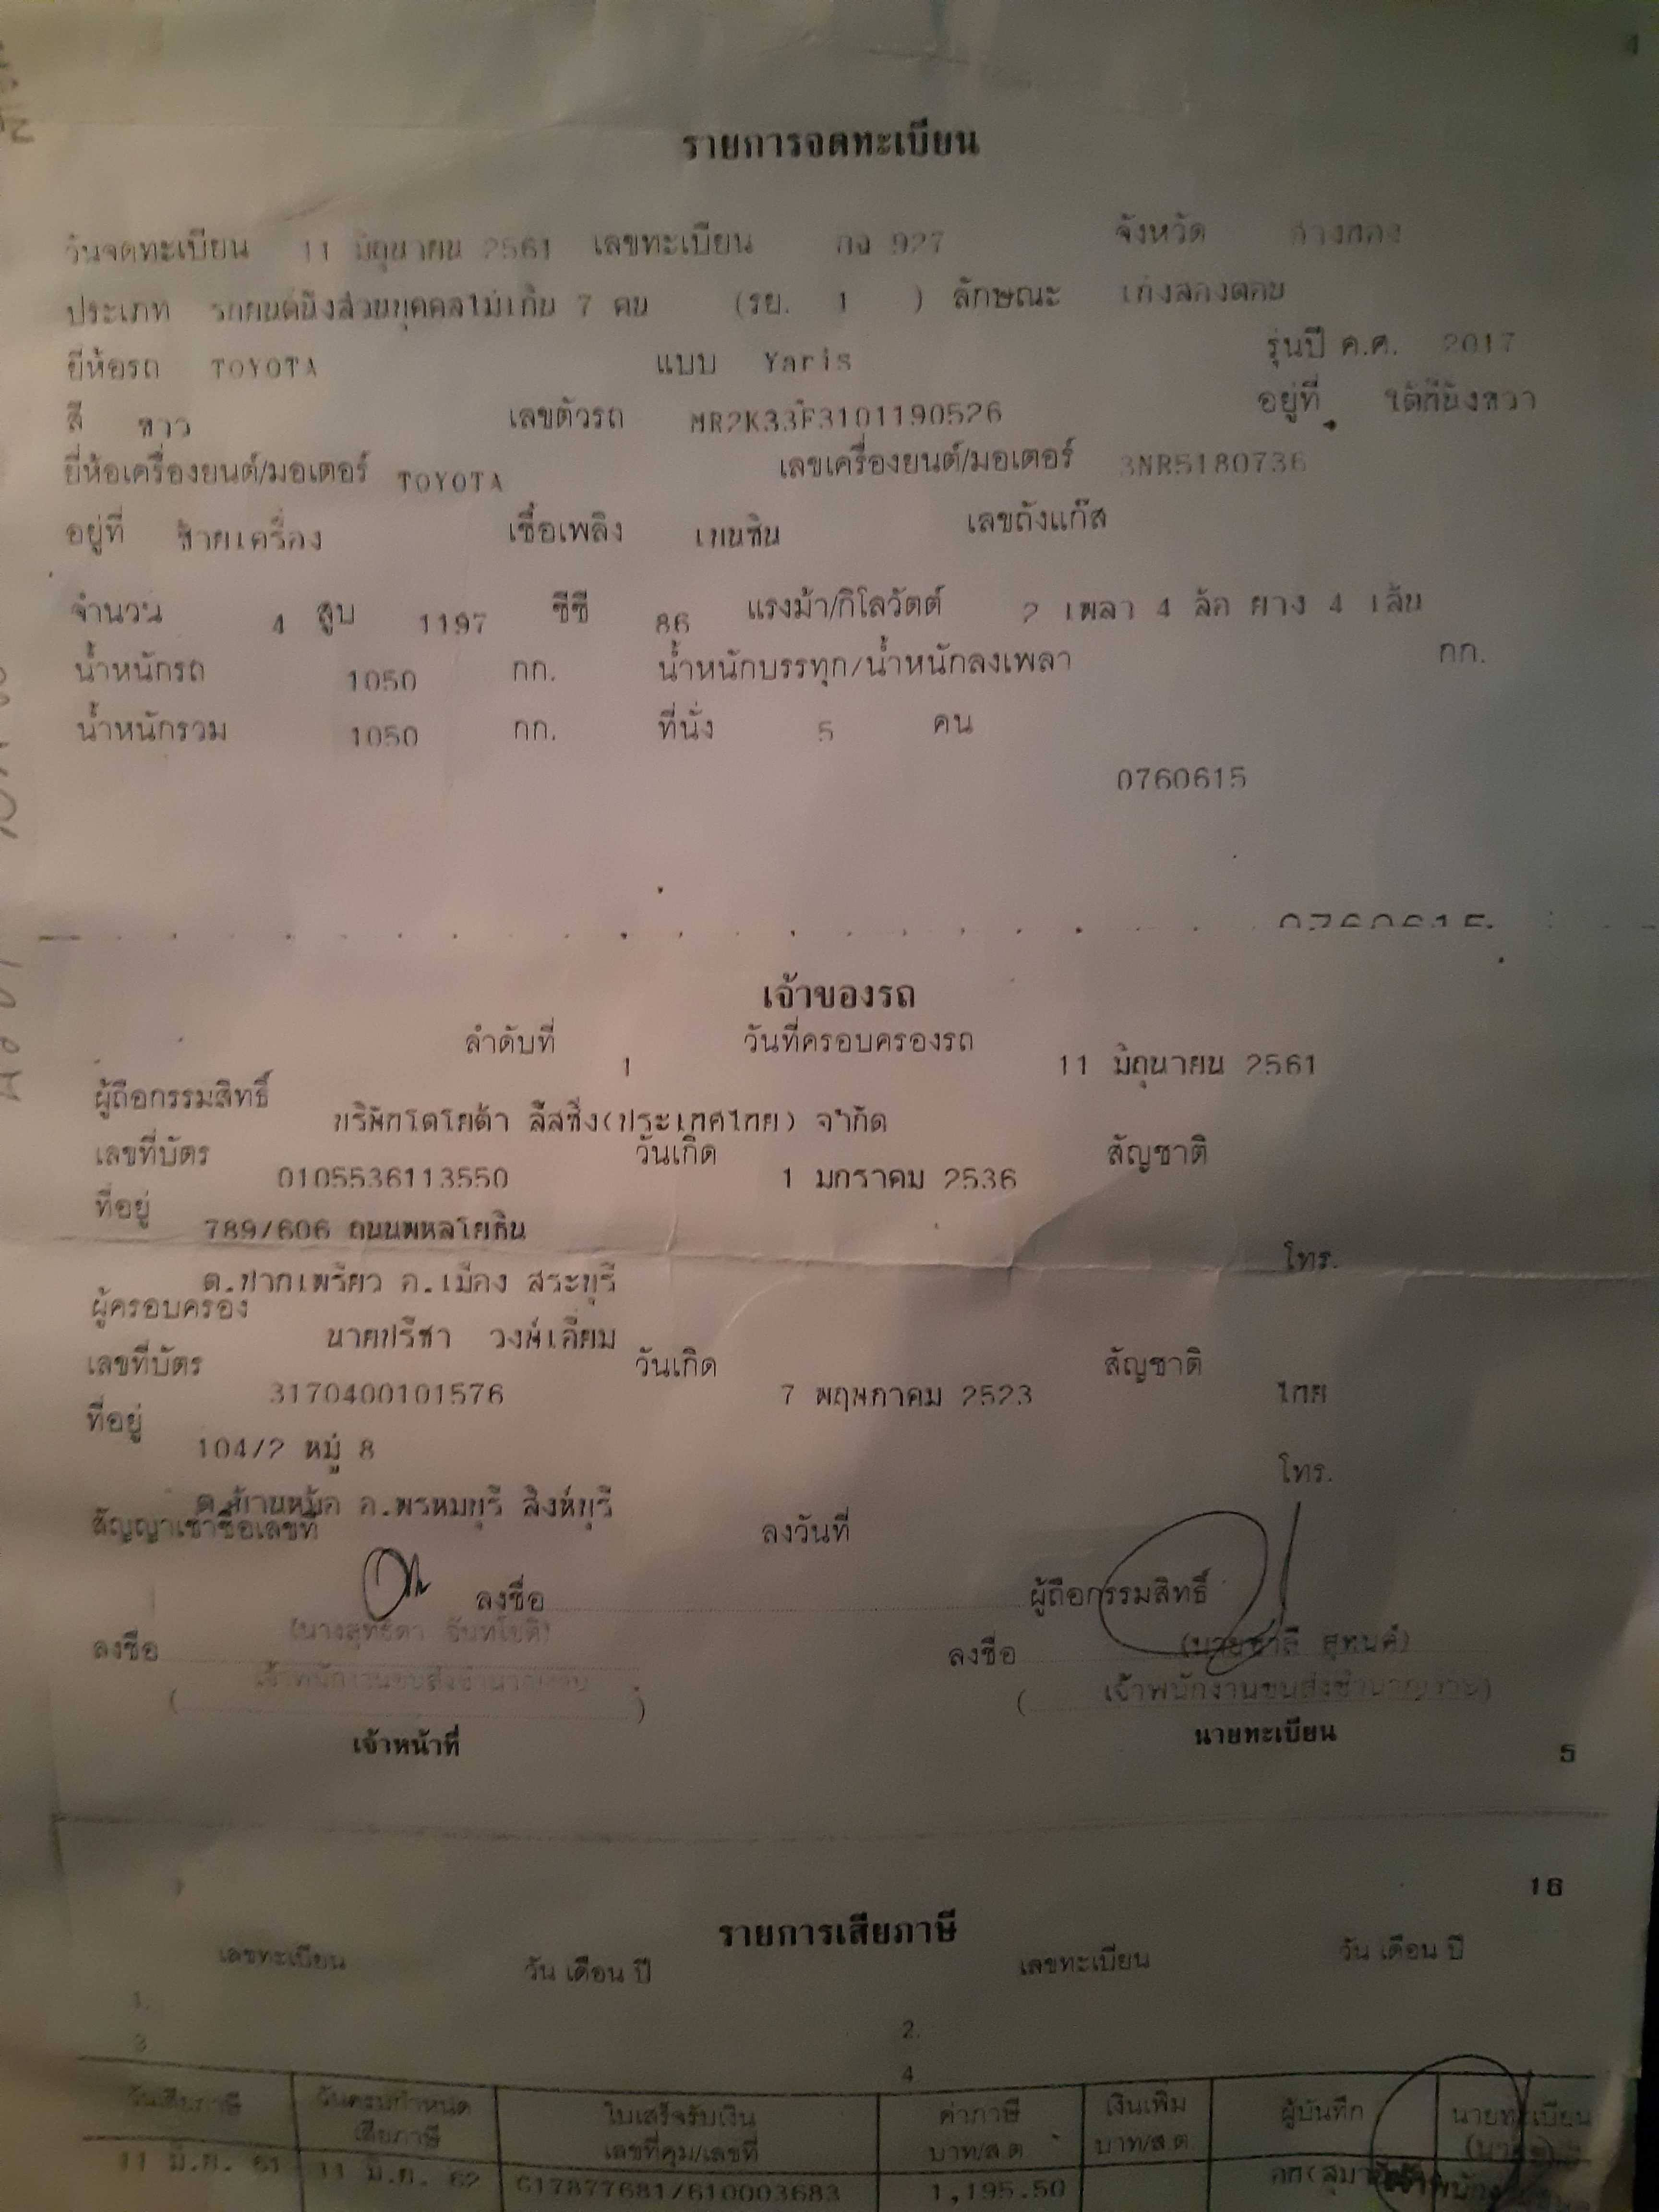 รายการจดทะเบียน
วันจดทะเบียน 11 มิถุนายน 2561 เลขทะเบียน กง 927 จังหวัด อ่างทอง
ประเภท รถยนต์นั่งส่วนบุคคลไม่เกิน 7 คน (รย. 1 ) ลักษณะ เก๋งสองตอน
ยี่ห้อรถ TOYOTA แบบ Yaris รุ่นปี ค.ศ. 2017
สี ขาว เลขตัวรถ MR2K33F3101190526 อยู่ที่ ใต้ที่นั่งขวา
ยี่ห้อเครื่องยนต์/มอเตอร์ TOYOTA เลขเครื่องยนต์/มอเตอร์ 3NR5180736
อยู่ที่ ซ้ายเครื่อง เชื้อเพลิง เบนซิน เลขถังแก๊ส
จำนวน 4 สูบ 1197 ซีซี 86 แรงม้า/กิโลวัตต์ 2 เพลา 4 ล้อ ยาง 4 เส้น
น้ำหนักรถ 1050 กก. น้ำหนักบรรทุก/น้ำหนักลงเพลา กก.
น้ำหนักรวม 1050 กก. ที่นั่ง 5 คน
0760615
0760615
เจ้าของรถ
ลำดับที่ 1 วันที่ครอบครองรถ 11 มิถุนายน 2561
ผู้ถือกรรมสิทธิ์ บริษัทโตโยต้า ลีสซิ่ง(ประเทศไทย) จำกัด
เลขที่บัตร 0105536113550 วันเกิด 1 มกราคม 2536 สัญชาติ
ที่อยู่ 789/606 ถนนพหลโยธิน
โทร.
ต.ปากเพรียว อ.เมือง สระบุรี
ผู้ครอบครอง นายปรีชา วงษ์เอี่ยม
เลขที่บัตร 3170400101576 วันเกิด 7 พฤษภาคม 2523 สัญชาติ ไทย
ที่อยู่ 104/2 หมู่ 8
โทร.
ต.บ้านหม้อ อ.พรหมบุรี สิงห์บุรี
สัญญาเช่าซื้อเลขที่ ลงวันที่
ลงชื่อ ผู้ถือกรรมสิทธิ์
ลงชื่อ (นางสุทธิดา จันทโชติ) ลงชื่อ (นายชาลี
เจ้าพนักงานขนส่งชำนาญงาน ( เจ้าพนักงานขนส่งชำนาญงาน)
( )
เจ้าหน้าที่ นายทะเบียน
5
16
รายการเสียภาษี
เลขทะเบียน วัน เดือน ปี เลขทะเบียน วัน เดือน ปี
1. 2.
3 4
วันเสียภาษี วันครบกำหนด เสียภาษี ใบเสร็จรับเงิน เลขที่คุม/เลขที่ ค่าภาษี บาท/ส.ต. เงินเพิ่ม บาท/ส.ต ผู้บันทึก นายทะเบียน
11 มิ.ย. 61 11 มิ.ย. 62 617877681/610003683 1,195.50